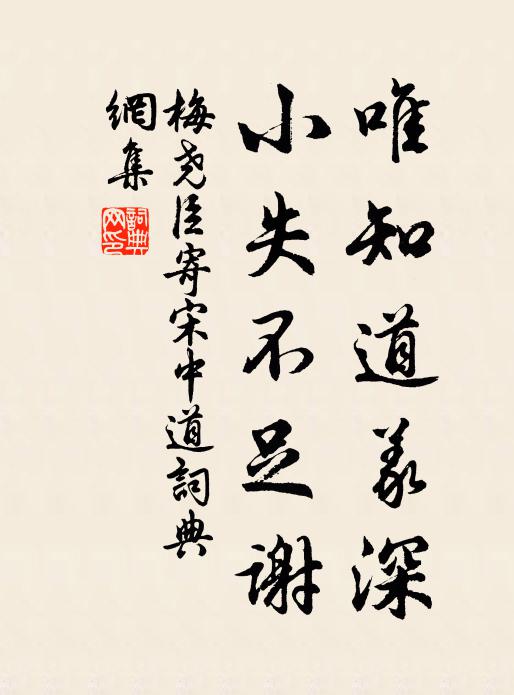 唯知道义深
小失不足谢
梅尧臣寄宋中道詞典
網集
詞典
网印